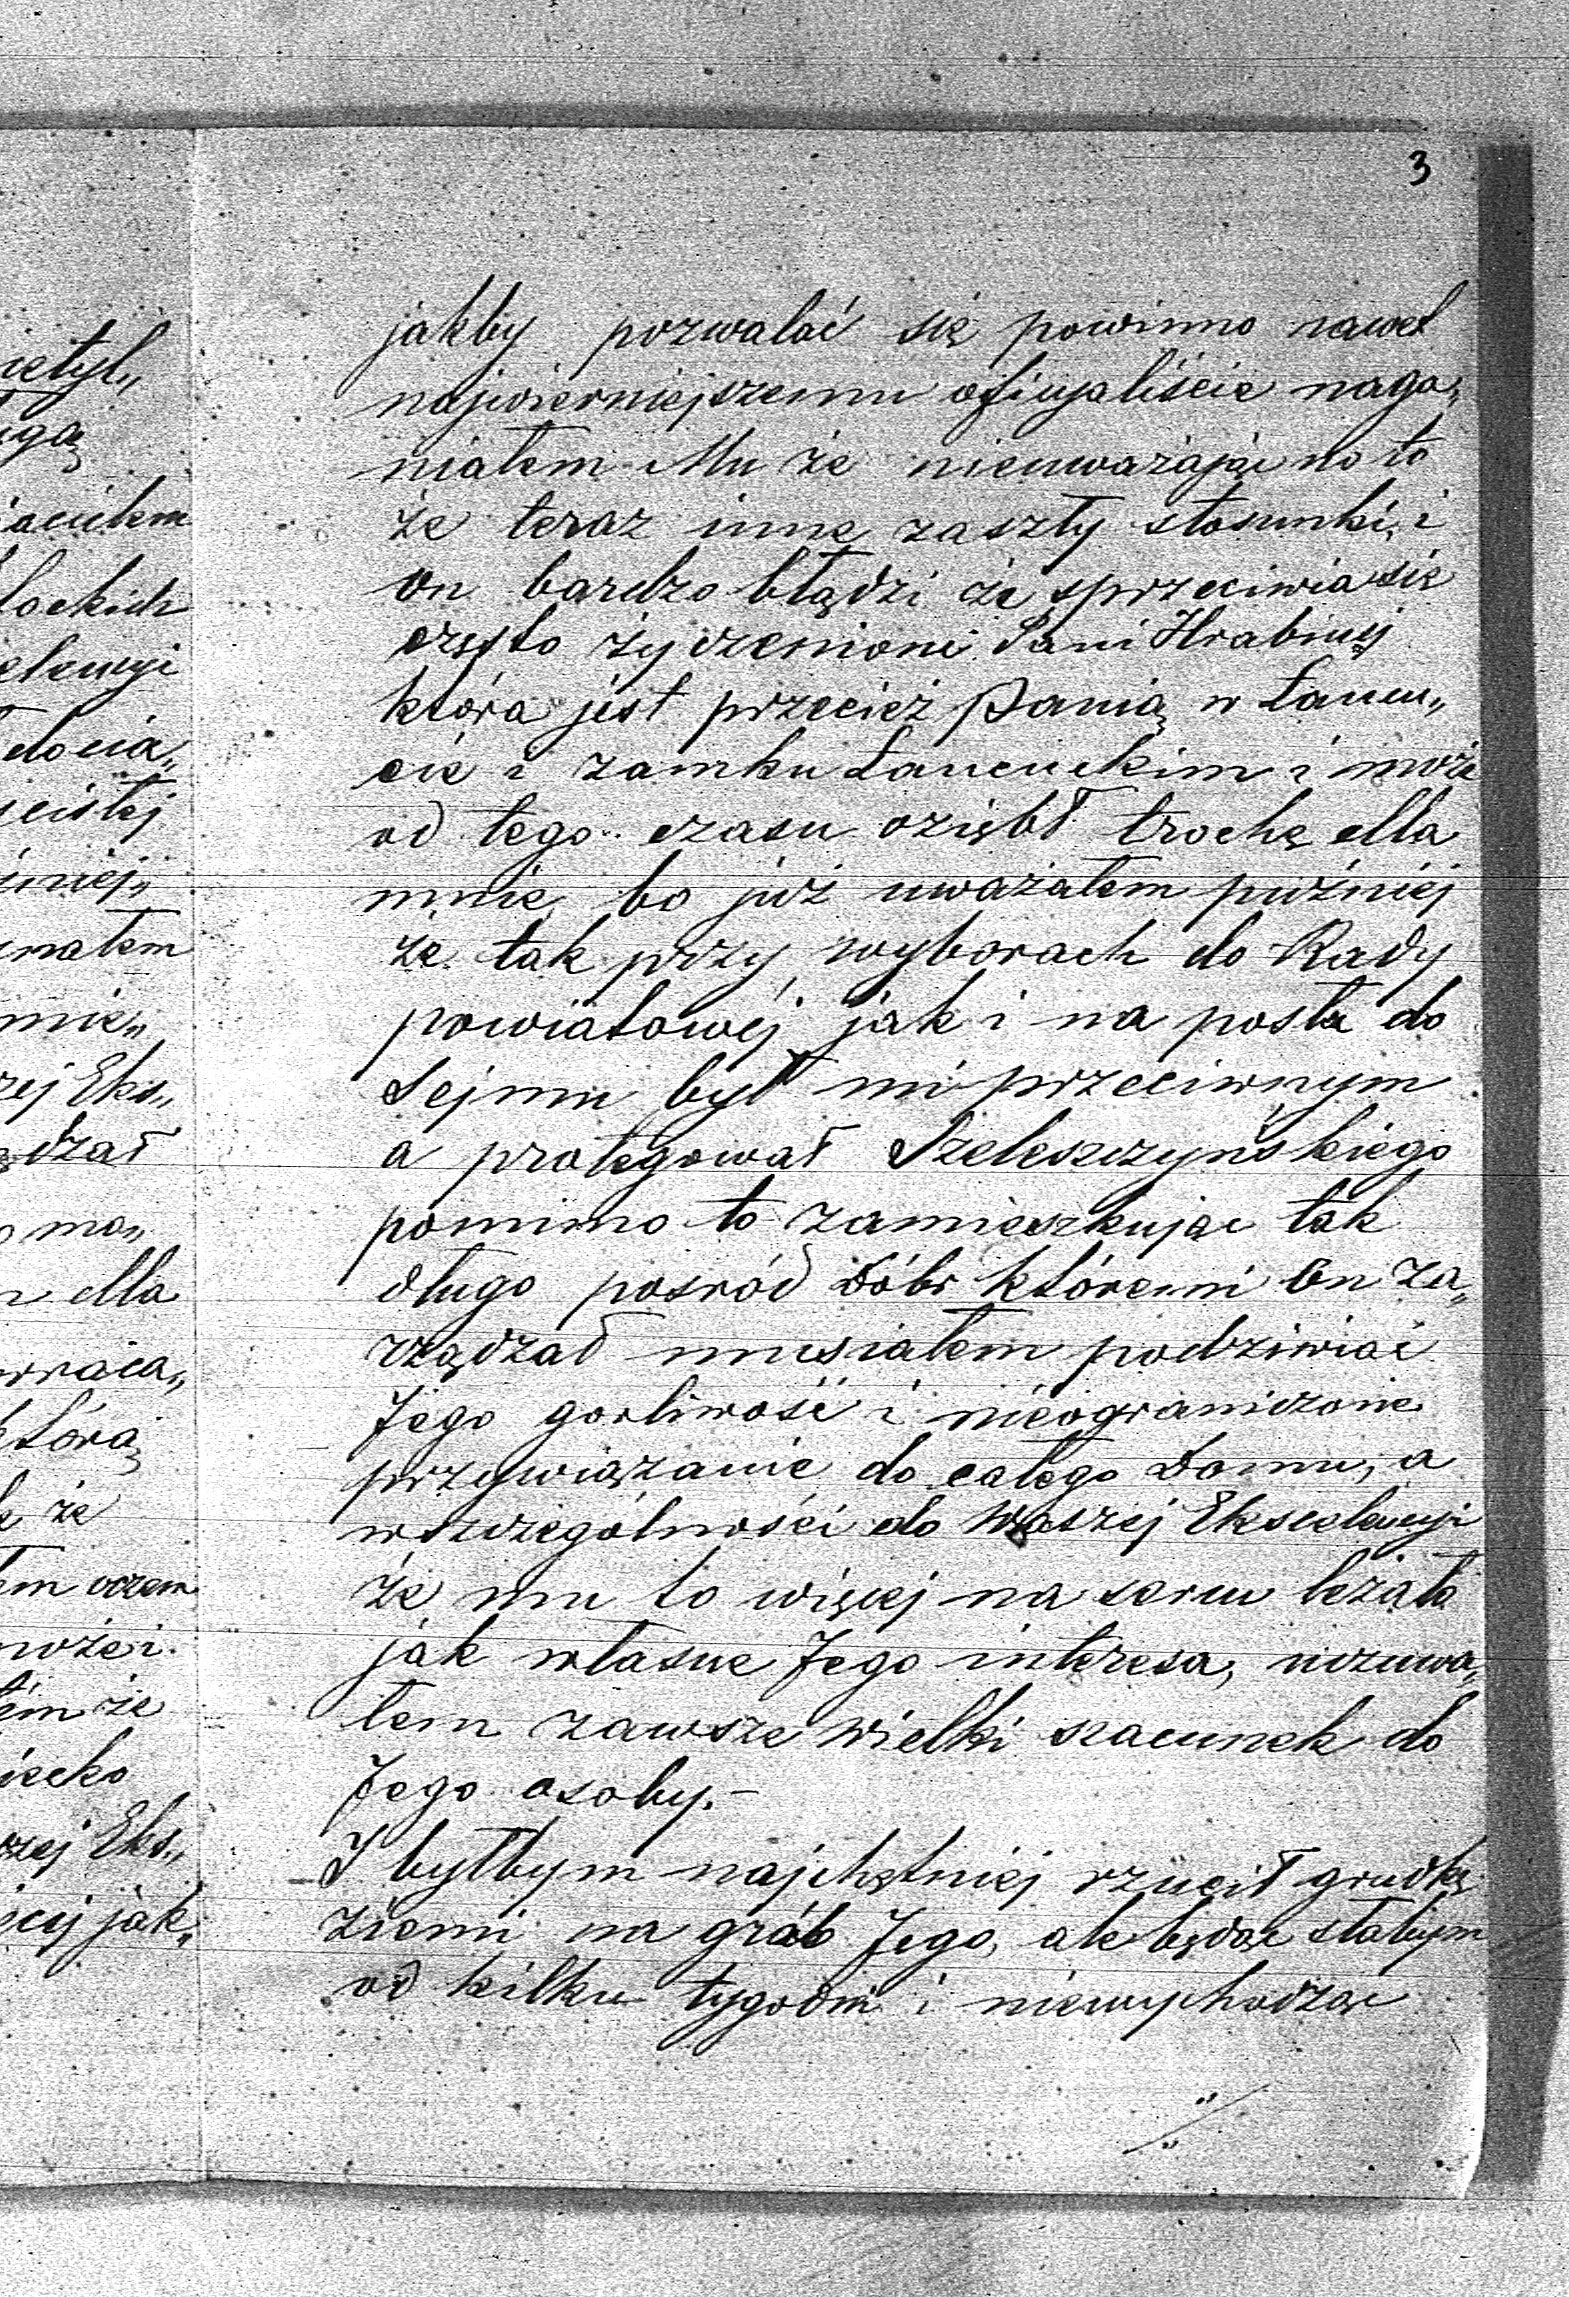 3
jakby pozwalać się powinno nawet
najwierniejszemu oficyaliście naga„
niałem Mu że nieuważając na to
że teraz inne zaszły stosunki, i
on bardzo błądzi że sprzeciwia się
często życzeniom Pani Hrabiny
która jest przecież Panią w Łańcu„
cie i zamku Łancuckim i może
od tego czasu oziębł trochę dla
mnie, bo już uważałem puźniej
że tak przy wyborach do Rady
powiatowéj jak i na posła do
Sejmu był mi przeciwnym
a protegował Szeleszczyńskiego
pomimo to zamieszkując tak
długo pośród Dóbr któremi On za„
rządzał musiałem podziwiać
Jego gorliwość i nieograniczone
przywiązanie do całego Domu, a
wszczególności do Waszej Ekscelencyi
że mu to więcej na sercu leżało
jak własne Jego interesa, uczuwa„
łem zawsze wielki szacunek do
Jego osoby.–
I byłbym najchętniej rzucił grudkę
ziemi na grób Jego, ale będąc słabym
od kilku tygodni i niewychodząc
ietyl„
egą
aciclem
lockich
elencyi
docia„
ścisłej
iniej„
małem
mie„
zej Eks„
dzał
mo„
dla
wraca„
którą
że
oczem
może i
że
iecko
szej Eks„
cej jak„